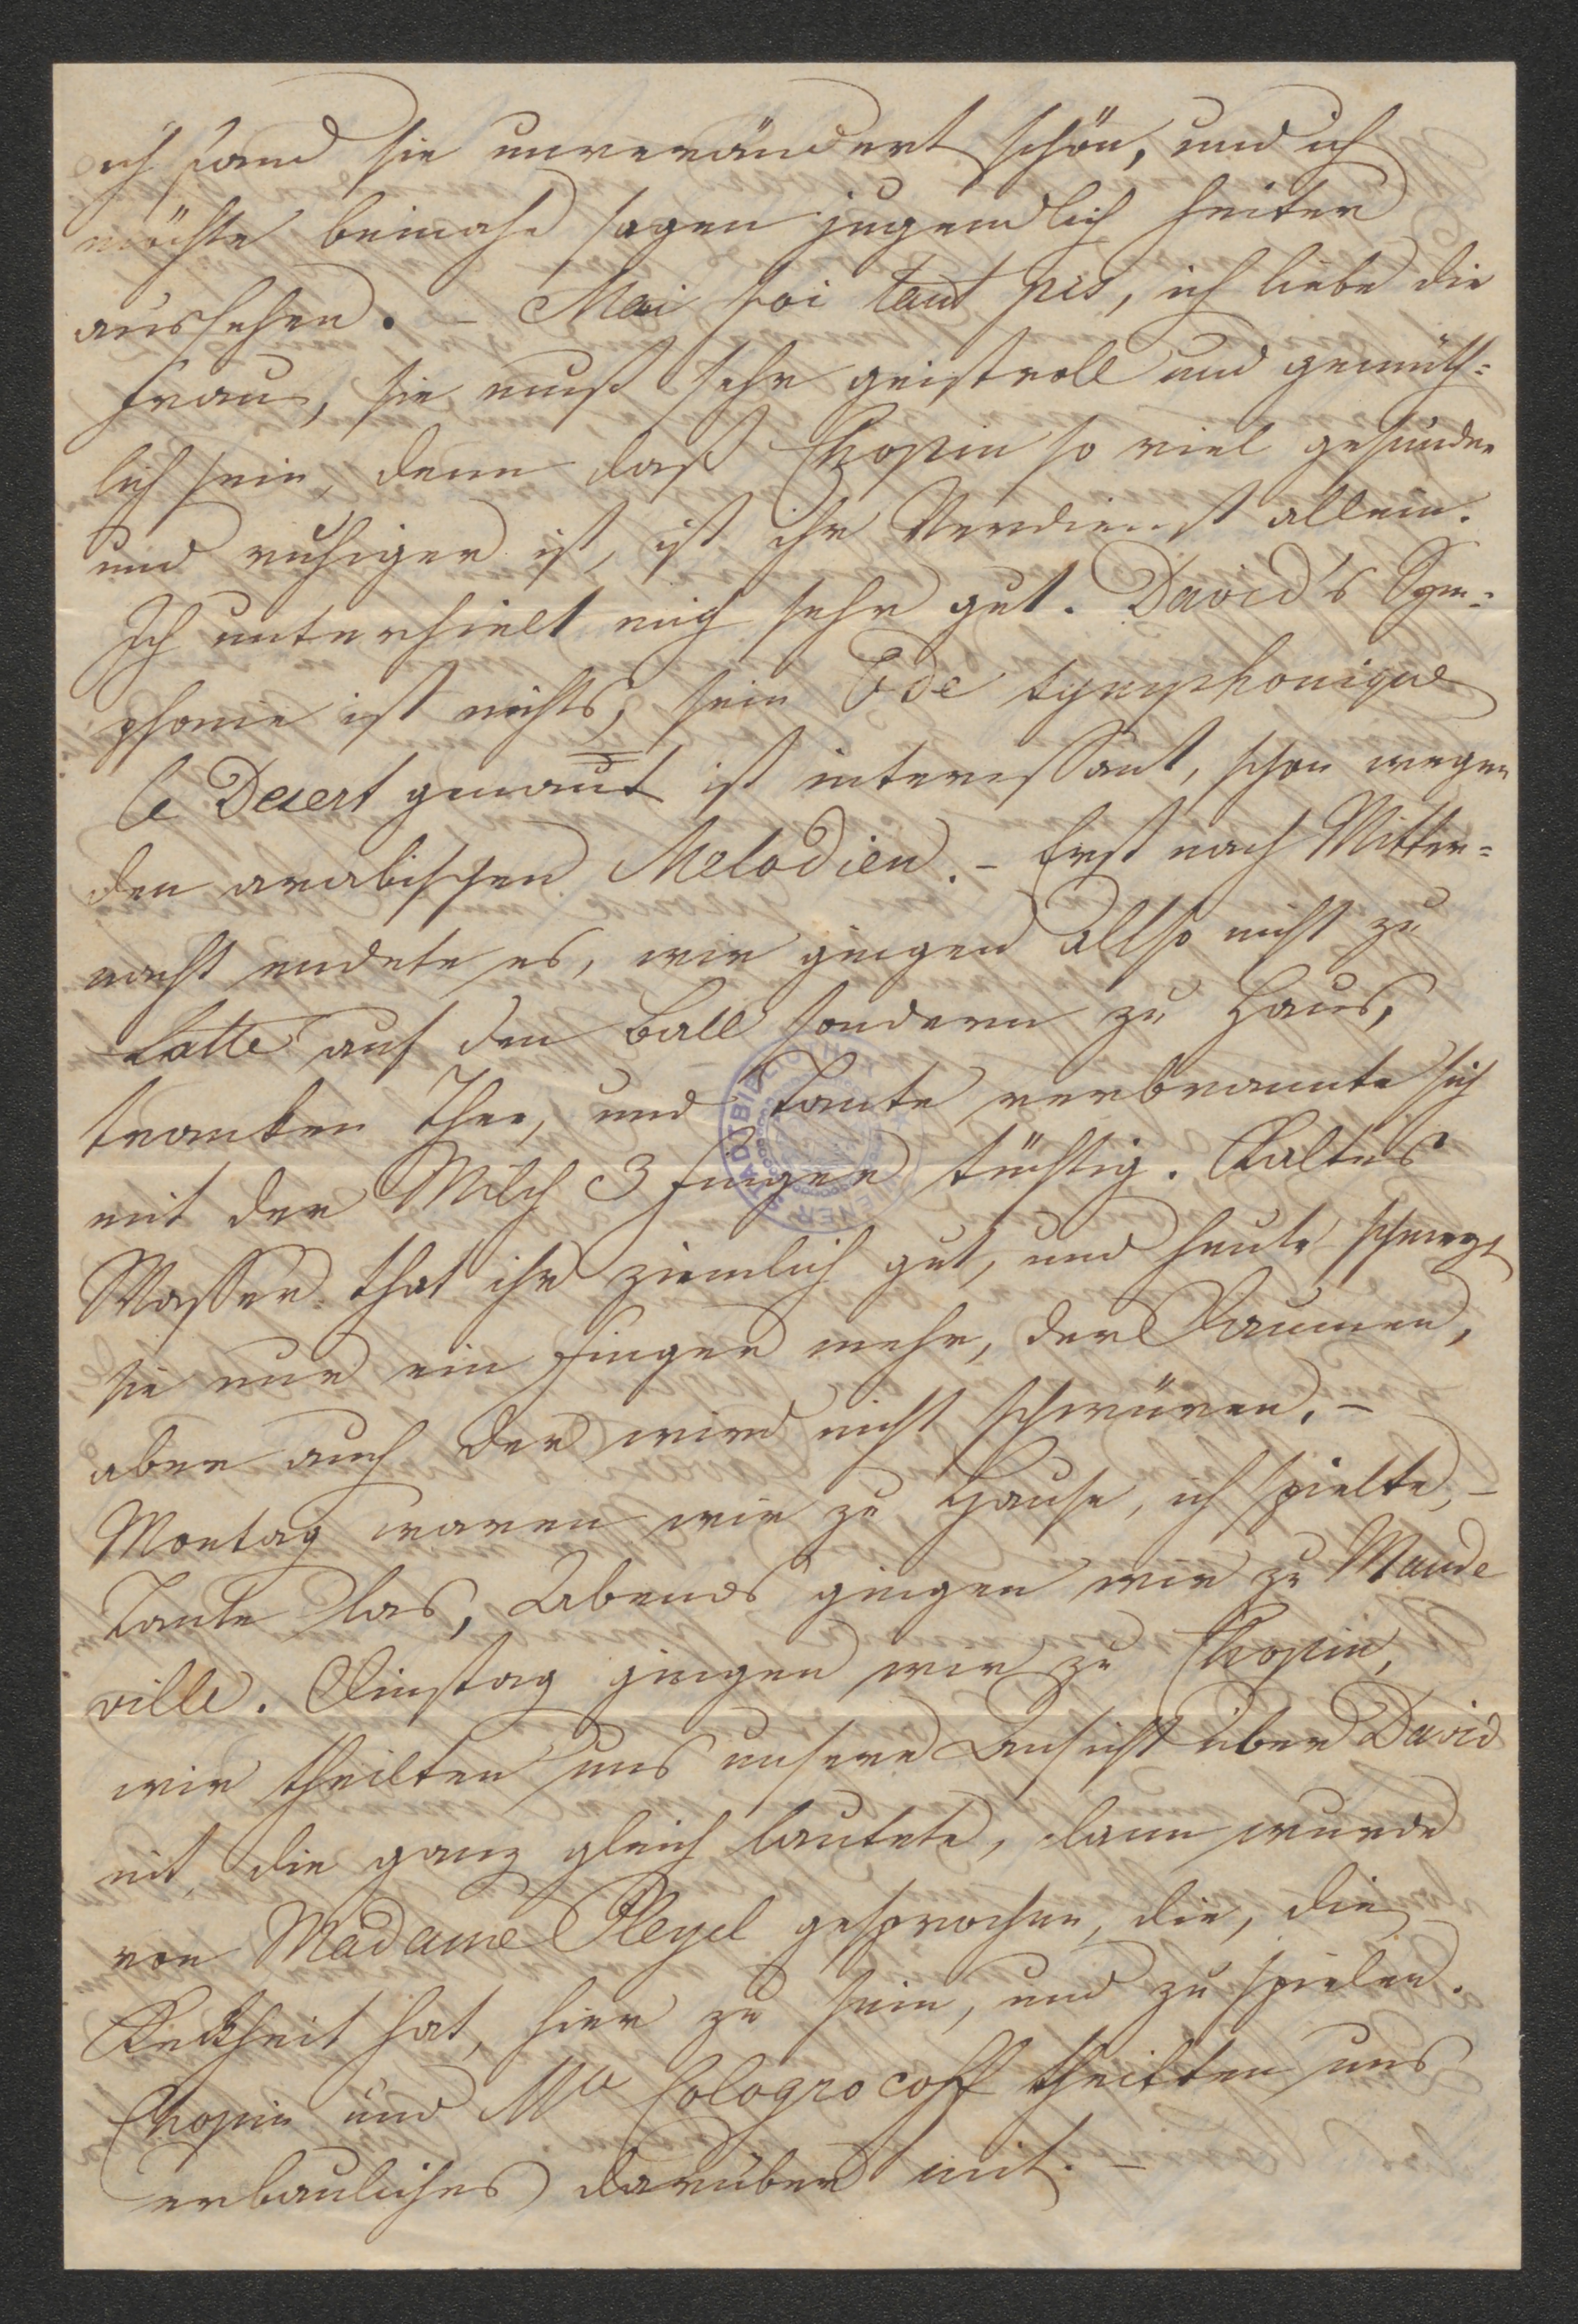 ich fand sie unverändert schön, und ich
möchte beinahe sagen jugendlich heiter
aussehen. – Mai foi tant pis, ich liebe die
Frau, sie muß sehr geistvoll und gemüth=
lich sein, denn daß Chopin so viel gesünder
und ruhiger ist, ist ihr Verdienst allein.
Ich unterhielt mich sehr gut. David's Sym=
phonie ist nichts, sein Ode symphonique
le Desert genannt ist interessant, schon wegen
den arabischen Melodien. – Erst nach Mitter=
nacht endete es, wir gingen allso nicht zu
Latte auf den Ball sondern zu Haus,
tranken Thee, und Tante verbrannte sich
mit der Milch 3 Finger tüchtig. Kaltes
Wasser that ihr ziemlich gut, und heute schmerzt
sie nur ein Finger mehr, der Daumen,
aber auch der wird nicht schwüren. –
Montag waren wir zu Hause, ich spielte, –
Tante las, Abends gingen wir zu Mande
ville. Dinstag gingen wir zu Chopin,
wir theilten uns unsere Ansicht über David
mit, die ganz gleich lautete, dann wurde
von Madame Pleyel gesprochen, die, die
Keckheit hat, hier zu sein, und zu spielen.
Chopin und Mll Cologrocoff theilten uns
erbauliches darüber mit. –
WIENER STADTBIBLIOTHEK